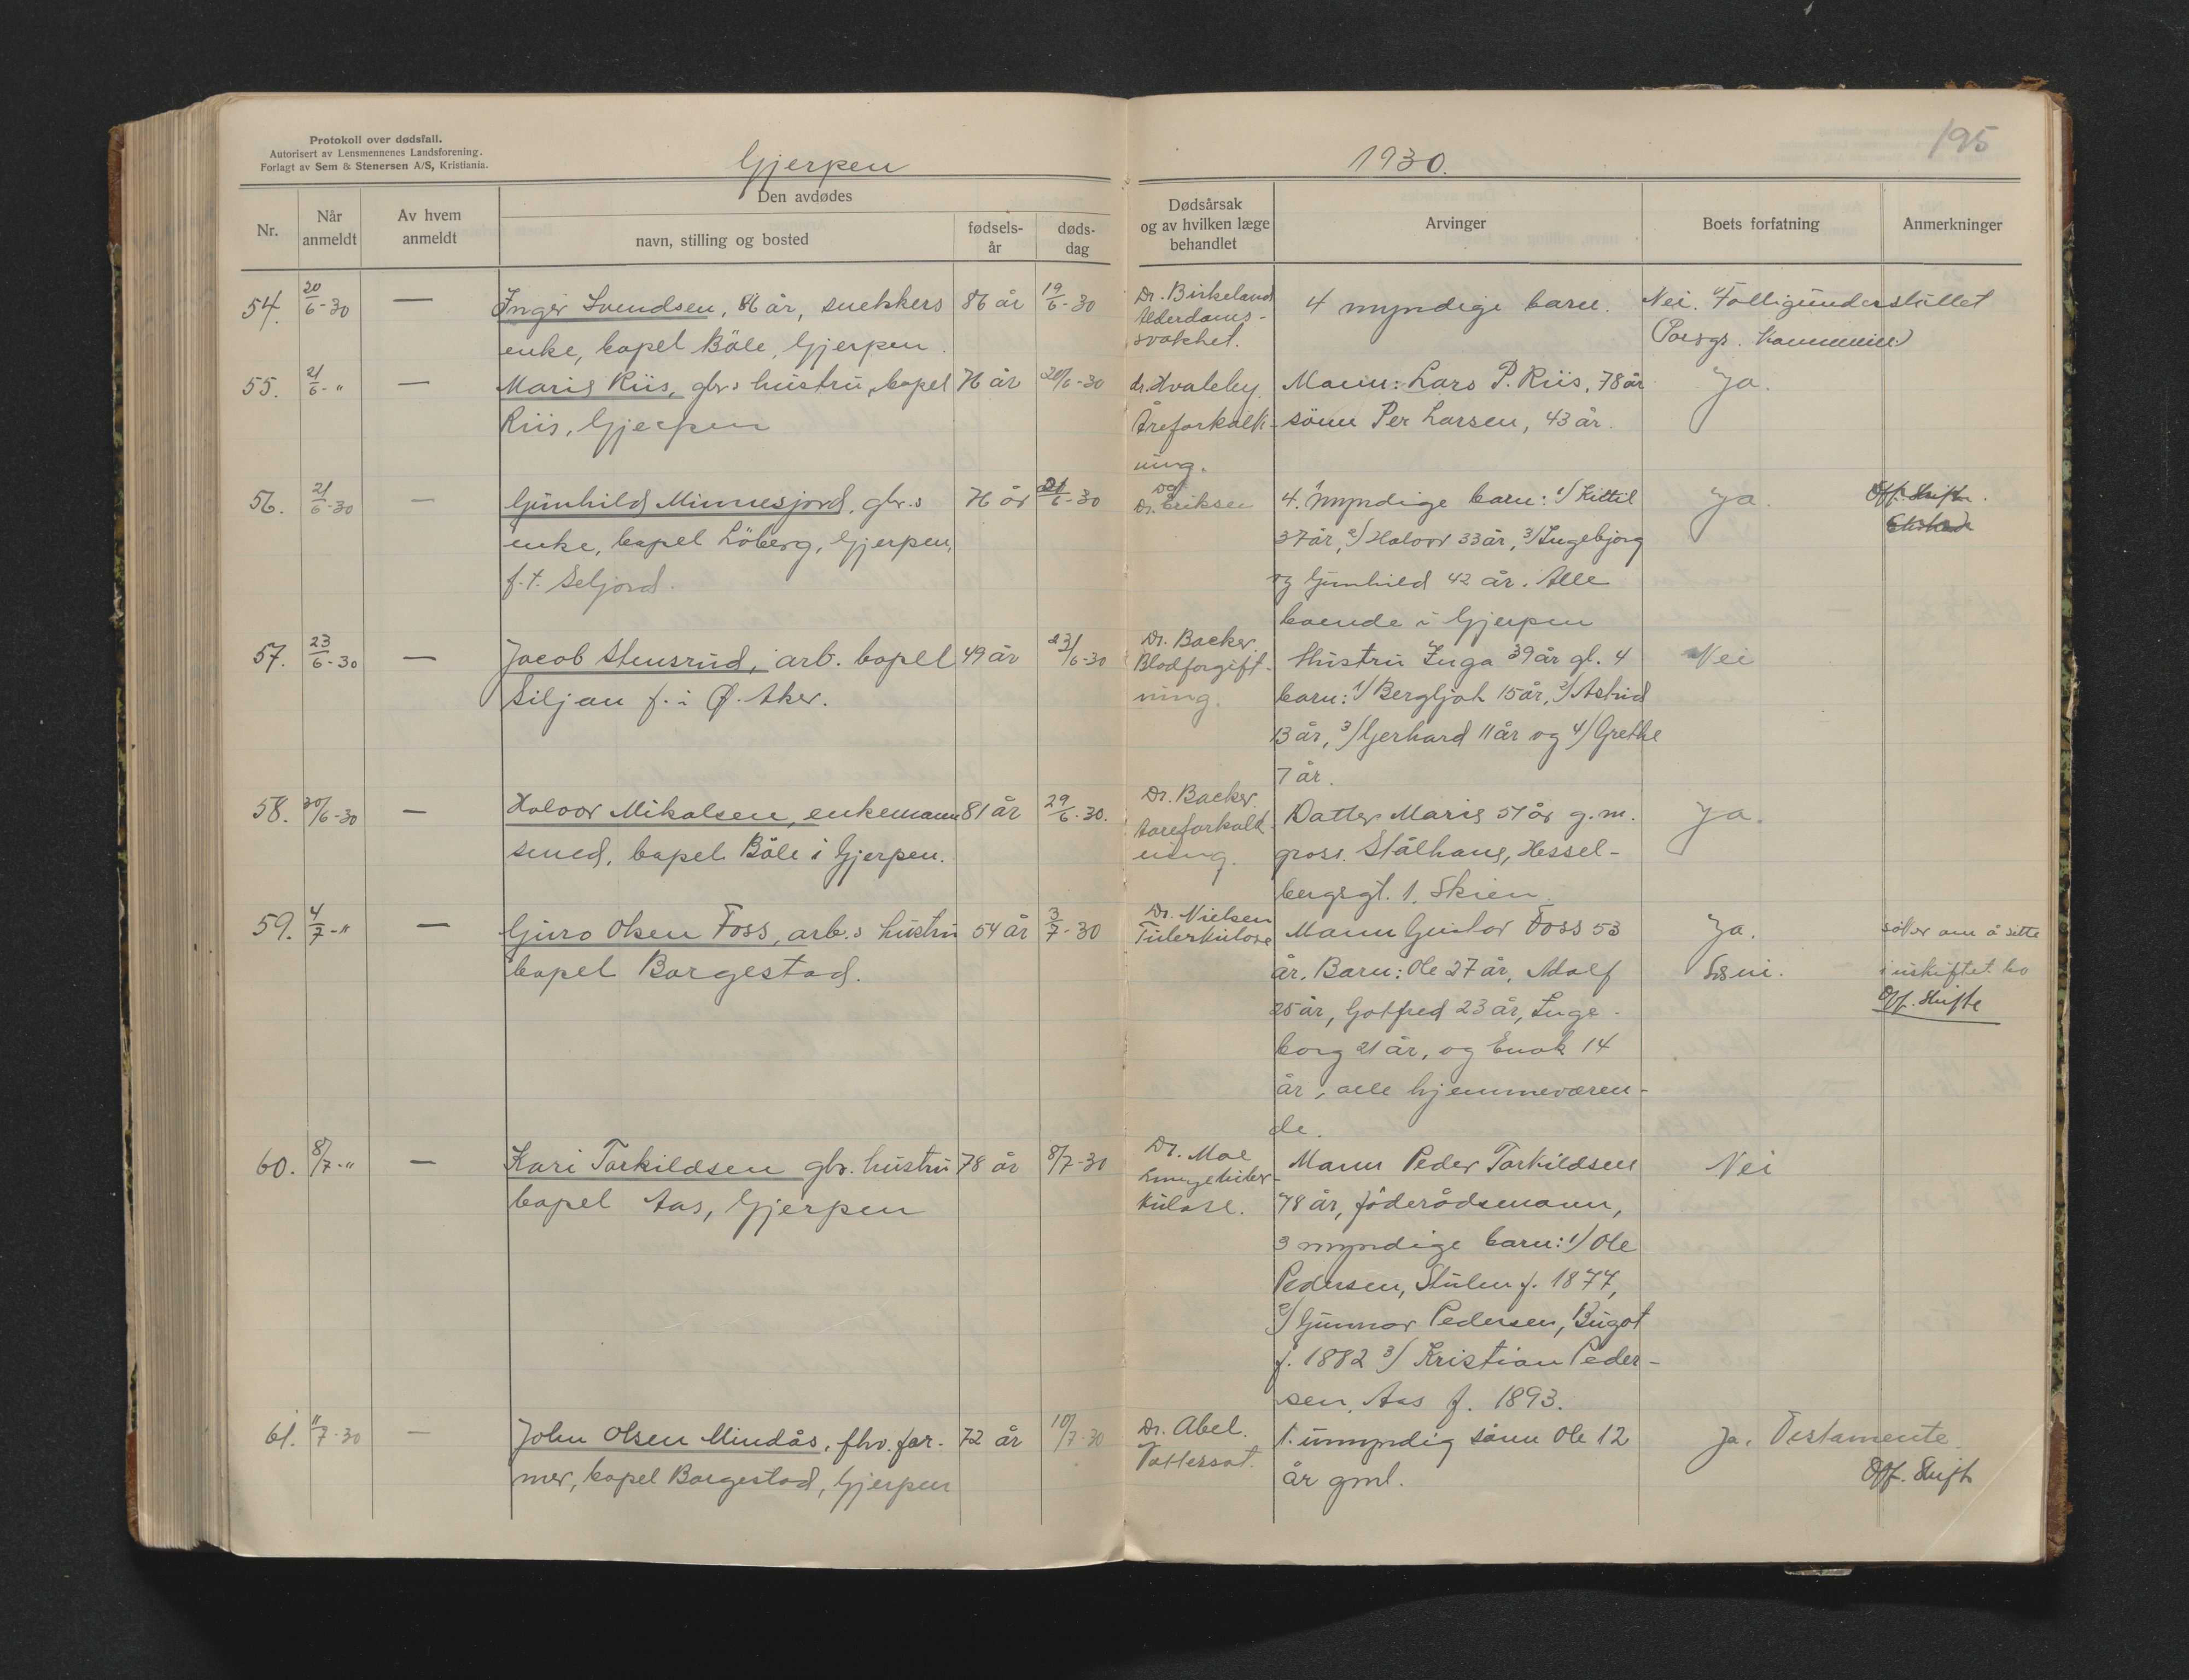 Protokoll over dødsfall.
Autorisert av Lensmennenes Landsforening.
Forlagt av Sem & Stenersen A/S, Kristiania.
Gjerpen
1930.
195
Nr.
Når anmeldt
Av hvem anmeldt
Den avdødes
navn, stilling og bosted
fødsels-år
døds-dag
Dødsårsak og av hvilken læge behandlet
Arvinger
Boets forfatning
Anmerkninger
54. 20/6-30 — Inger Svendsen, 86 år, snekkers 86 år 19/6-30 Dr. Birkeland 4 myndige barn. Nei. Fattigunderstöttet
enke, bopel Böle, Gjerpen. Alderdoms-
svakhet. (Porsgr. kommune)
55. 21/6-" — Maria Riis, gbr.s hustru, bopel 76 år 20/6-30 dr. Hvaleby. Mann: Lars P. Riis, 78 år Ja.
Riis, Gjerpen Åreforkalk- sönn Per Larsen, 43 år.
ning.
56. 21/6-30 — Gunhild Minnesjord, gbr.s 76 år 21/6-30 og Dr. Eriksen 4. myndige barn: 1/ Kittil Ja. Off. Skifte.
enke, bopel Löberg, Gjerpen, 37 år, 2/ Halvor 33 år, 3/ Ingebjorg
f. t. Seljord. og Gunhild 42 år. Alle
boende i Gjerpen
57. 23/6-30 — Jacob Stensrud, arb. bopel 49 år 23/6-30 Dr. Backer. Hustru Inga 39 år gl. 4 Nei
Siljan f. i Ø. Aker. Blodforgift- barn: 1/ Bergljot 15 år, 2/ Astrid
ning. 13 år, 3/ Gerhard 11 år og 4/ Grethe
7 år.
58. 30/6-30 — Halvor Mikalsen, enkemann 81 år 29/6-30. Dr. Backer. Datter Maria 51 år g.m. Ja.
smed, bopel Böle i Gjerpen. Aareforkalk- gross. Stålhane, Hessel-
ning. bergsgt. 1. Skien.
59. 4/7-" — Guro Olsen Foss, arb.s hustru 54 år 3/7-30 Dr. Nielsen Mann Gustav Foss 53 Ja. söker om å sitte
bopel Borgestad. Tuberkulose år. Barn: Ole 27 år, Adolf i uskiftet bo
25 år, Gotfred 23 år, Inge- Off. Skifte
borg 21 år, og Enok 14
år, alle hjemmeværen-
de.
60. 8/7-" — Kari Torkildsen gbr. hustru 78 år 8/7-30 Dr. Moe Mann Peder Torkildsen Nei
bopel Aas, Gjerpen Lungetuber- 78 år, föderådsmann,
kulose. 3 myndige barn: 1/ Ole
Pedersen, Stulen f. 1877,
2/ Gunnar Pedersen, Bugot
f. 1882 3/ Kristian Peder-
sen, Aas f. 1893.
61. 11/7-30 — John Olsen Mindås, fhv. far- 72 år 10/7-30 Dr. Abel. 1. umyndig sönn Ole 12 Ja. Testamente.
mer, bopel Borgestad, Gjerpen Vattersot. år gml. Off. Skifte